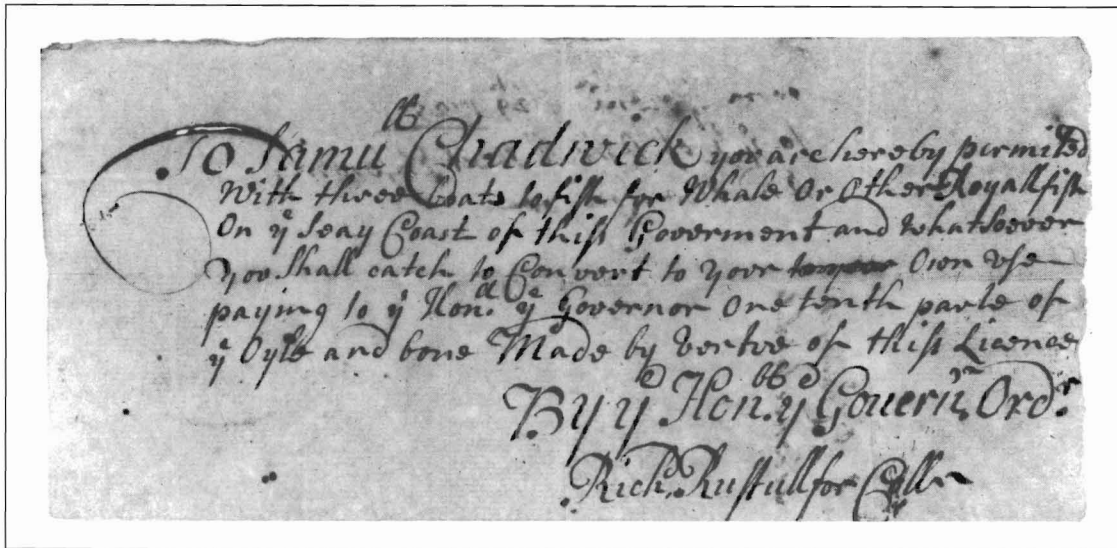 To Samu^ll Chadwick you are hereby permited
With three boats to fish for Whale Or Other Royall fish
On y^e Seay Coast of this Goverment and whatsoever
you Shall catch to Convert to your Own Vse
paying to y^e Hon.^ll y^e Governor One tenth parte of
y^e Oyle and bone Made by Vertve of this Licence
By y^e Hon.^bl y^e Gouern^rs Ord^r
Rich. Rustull for